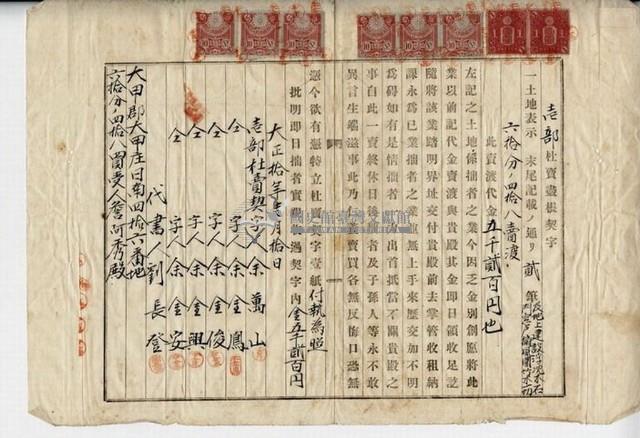 壱部杜賣盡根契字
一土地表示 末尾記載ノ通リ 貳筆
六拾分ノ四拾八賣渡
此賣渡代金五千貳百円也
左記之土地係拙者之業今因乏金別創愿將此
業以前記代金賣渡與貴殿其金即日領收足訖
隨將該業踏明界址交付貴殿前去掌管收租納
課永為己業拙者之業無上手來歷交加不明
為碍如有是情拙者出首抵當不關貴殿之
事自此一賣終休日後拙者及子孫人等永不敢
異言生端滋事此乃賣買各無反悔口恐無
憑今欲有憑特立杜賣契字壹紙付執為照
批明即日拙者實契字內金五千貳百円
大正拾年月拾日
壱部杜賣契字人余萬山
仝字人余金鳳
仝字人余金俊
仝字人余金興
仝字人余金安
代書人劉長登
大甲郡大甲庄日南四拾六番地
六拾分ノ四拾八買受人詹阿秀殿
國史館臺灣文獻館